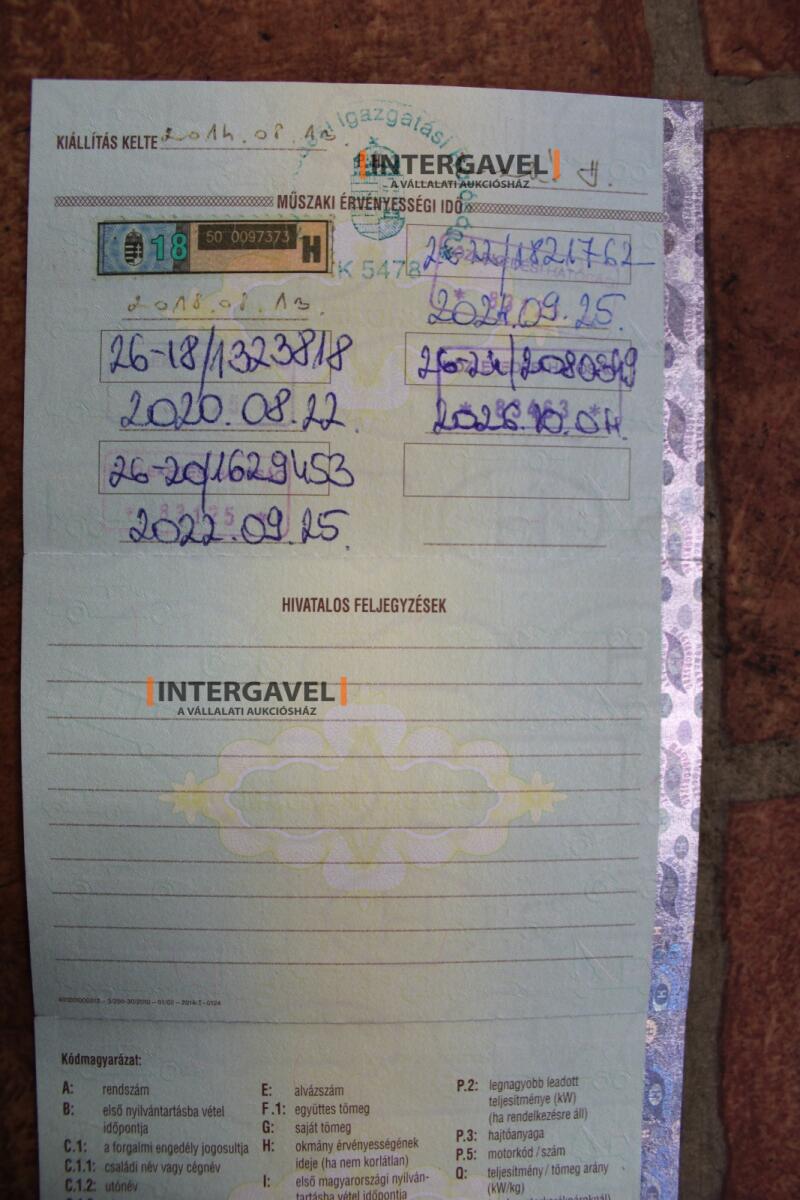 KIÁLLÍTÁS KELTE 2014.08.13.
Igazgatási
INTERGAVEL
A VÁLLALATI AUKCIÓSHÁZ
MŰSZAKI ÉRVÉNYESSÉGI IDŐ
18 50 0097373 H
K 5478
2018.08.13.
26-18/1323818
2020.08.22.
26-20/1629453
2022.09.25.
26-22/1821762
2024.09.25.
26-24/2080349
2026.10.04.
HIVATALOS FELJEGYZÉSEK
INTERGAVEL
A VÁLLALATI AUKCIÓSHÁZ
Kódmagyarázat:
A: rendszám
B: első nyilvántartásba vétel
időpontja
C.1: a forgalmi engedély jogosultja
C.1.1: családi név vagy cégnév
C.1.2: utónév
E: alvázszám
F.1: együttes tömeg
G: saját tömeg
H: okmány érvényességének
ideje (ha nem korlátlan)
I: első magyarországi nyilván-
tartásba vétel időpontja
P.2: legnagyobb leadott
teljesítménye (kW)
(ha rendelkezésre áll)
P.3: hajtóanyaga
P.5: motorkód / szám
Q: teljesítmény / tömeg arány
(kW/kg)